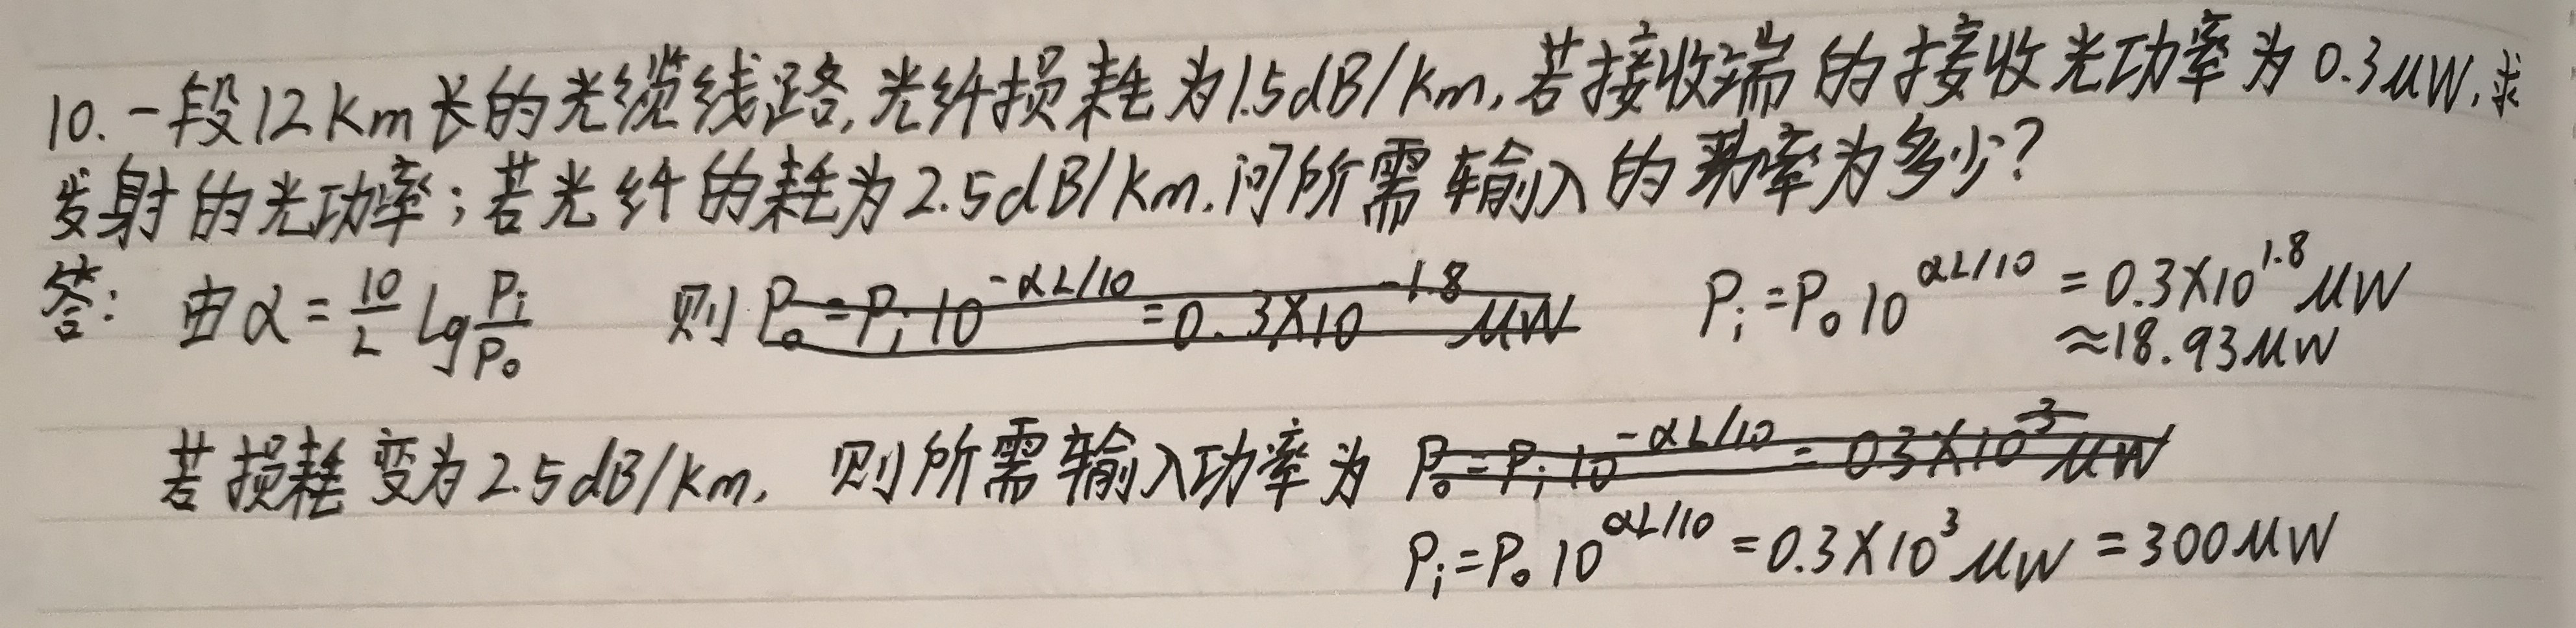 10.一段12Km长的光缆线路,光纤损耗为1.5dB/Km,若接收端的接收光功率为0.3μW,求
发射的光功率;若光纤的耗为2.5dB/Km.问所需输入的功率为多少?
答: 由α=10/L Lg Pi/Po 则 Po=Pi10^-αL/10=0.3×10^-1.8μW Pi=Po10^αL/10=0.3×10^1.8μW
≈18.93μW
若损耗变为2.5dB/Km, 则所需输入功率为 Po=Pi10^-αL/10=0.3×10^3μW
Pi=Po10^αL/10=0.3×10^3μW=300μW